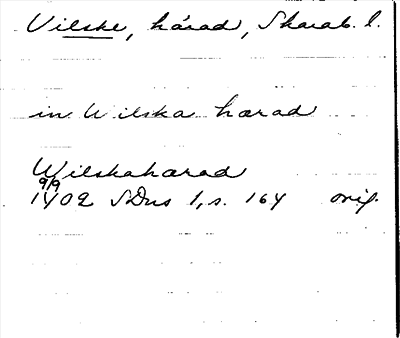 Vilske, härad, Skarab. l.
in Wilska hærad
Wilskahærad
9/9
1402 SDns 1, s. 164 orig.